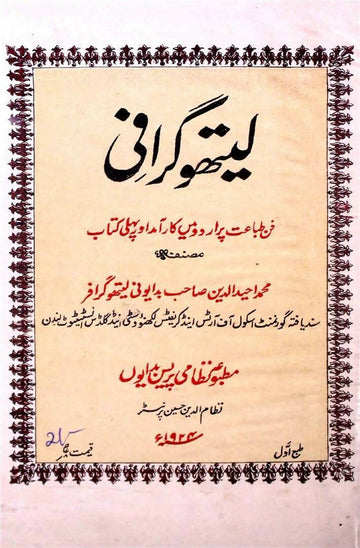 لیتھوگرافی
فن طباعت پر اردو میں کارآمد اور پہلی کتاب
مصنفہ
محمد احیدالدین صاحب بدایونی لیتھوگرافر
سند یافتہ گورنمنٹ اسکول آف آرٹس اینڈ کریفٹس لکھنؤ و سٹی اینڈ گلڈس انسٹیٹیوٹ لندن
مطبوعہ نظامی پریس بدایوں
نظام الدین حسین پرنٹر
۱۹۲۴ء
طبع اوّل
قیمت